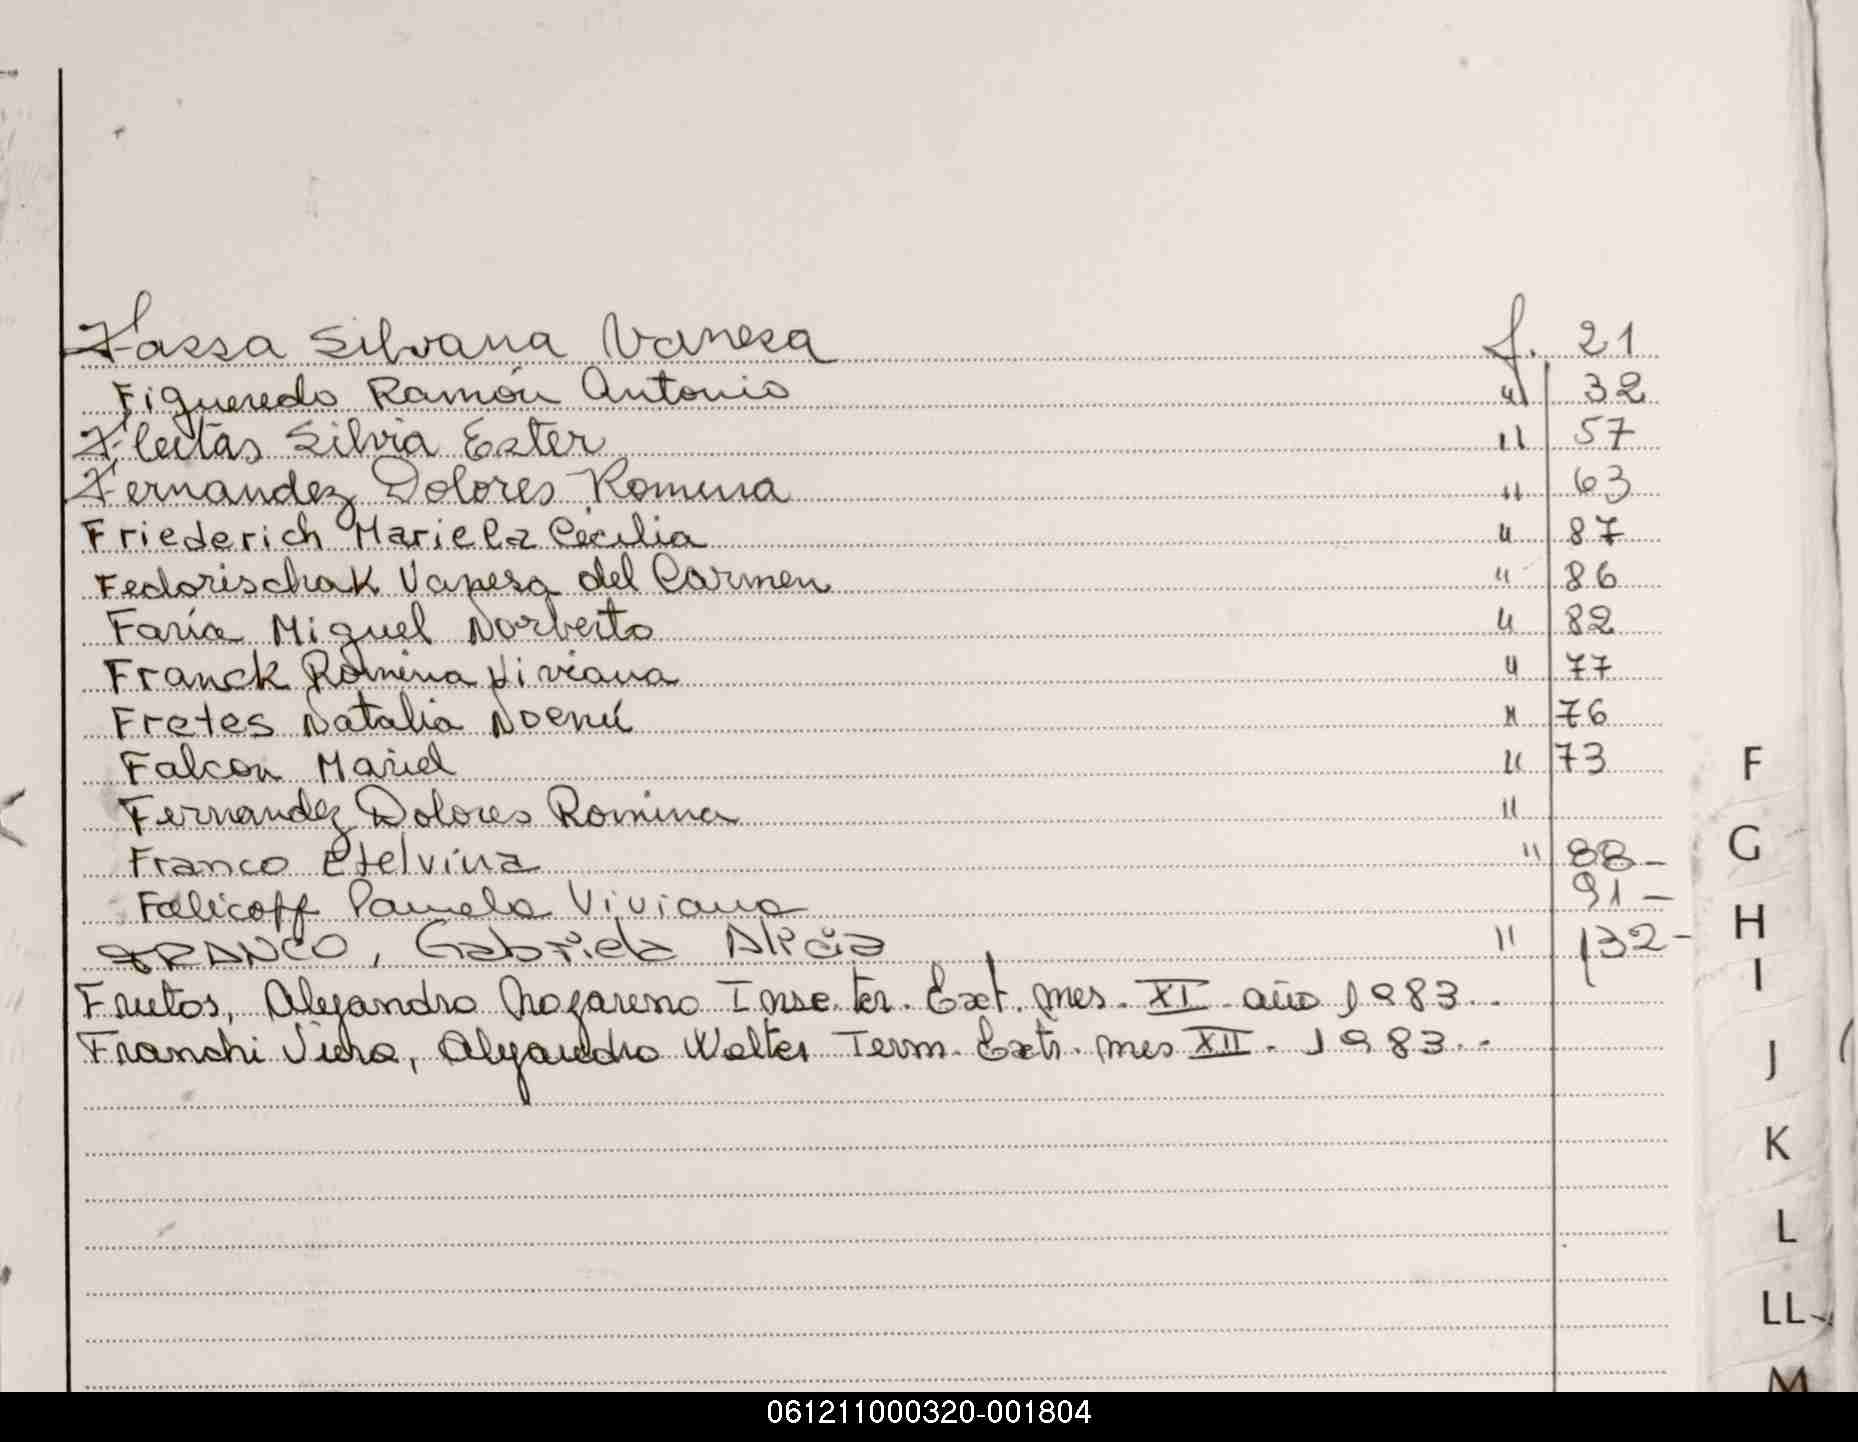 Fassa Silvana Vanesa f. 21
Figueredo Ramón Antonio " 32
Fleitas Silvia Ester " 57
Fernandez Dolores Romina " 63
Friederich Mariela Cecilia " 87
Fedorischak Vanesa del Carmen " 86
Faría Miguel Norberto " 82
Franck Romina Viviana " 77
Fretes Natalia Noemí " 76
Falcon Mariel " 73
Fernandez Dolores Romina "
Franco Etelvina " 88-
Falicoff Pamela Viviana 91-
FRANCO, Gabriela Alicia " 132-
Frutos, Alejandro Nazareno Insc. ter. Ext. mes. XI año 1983..
Franchi Viera, Alejandro Walter Term. Extr. mes XII. 1983..
F
G
H
I
J
K
L
LL
M
061211000320-001804